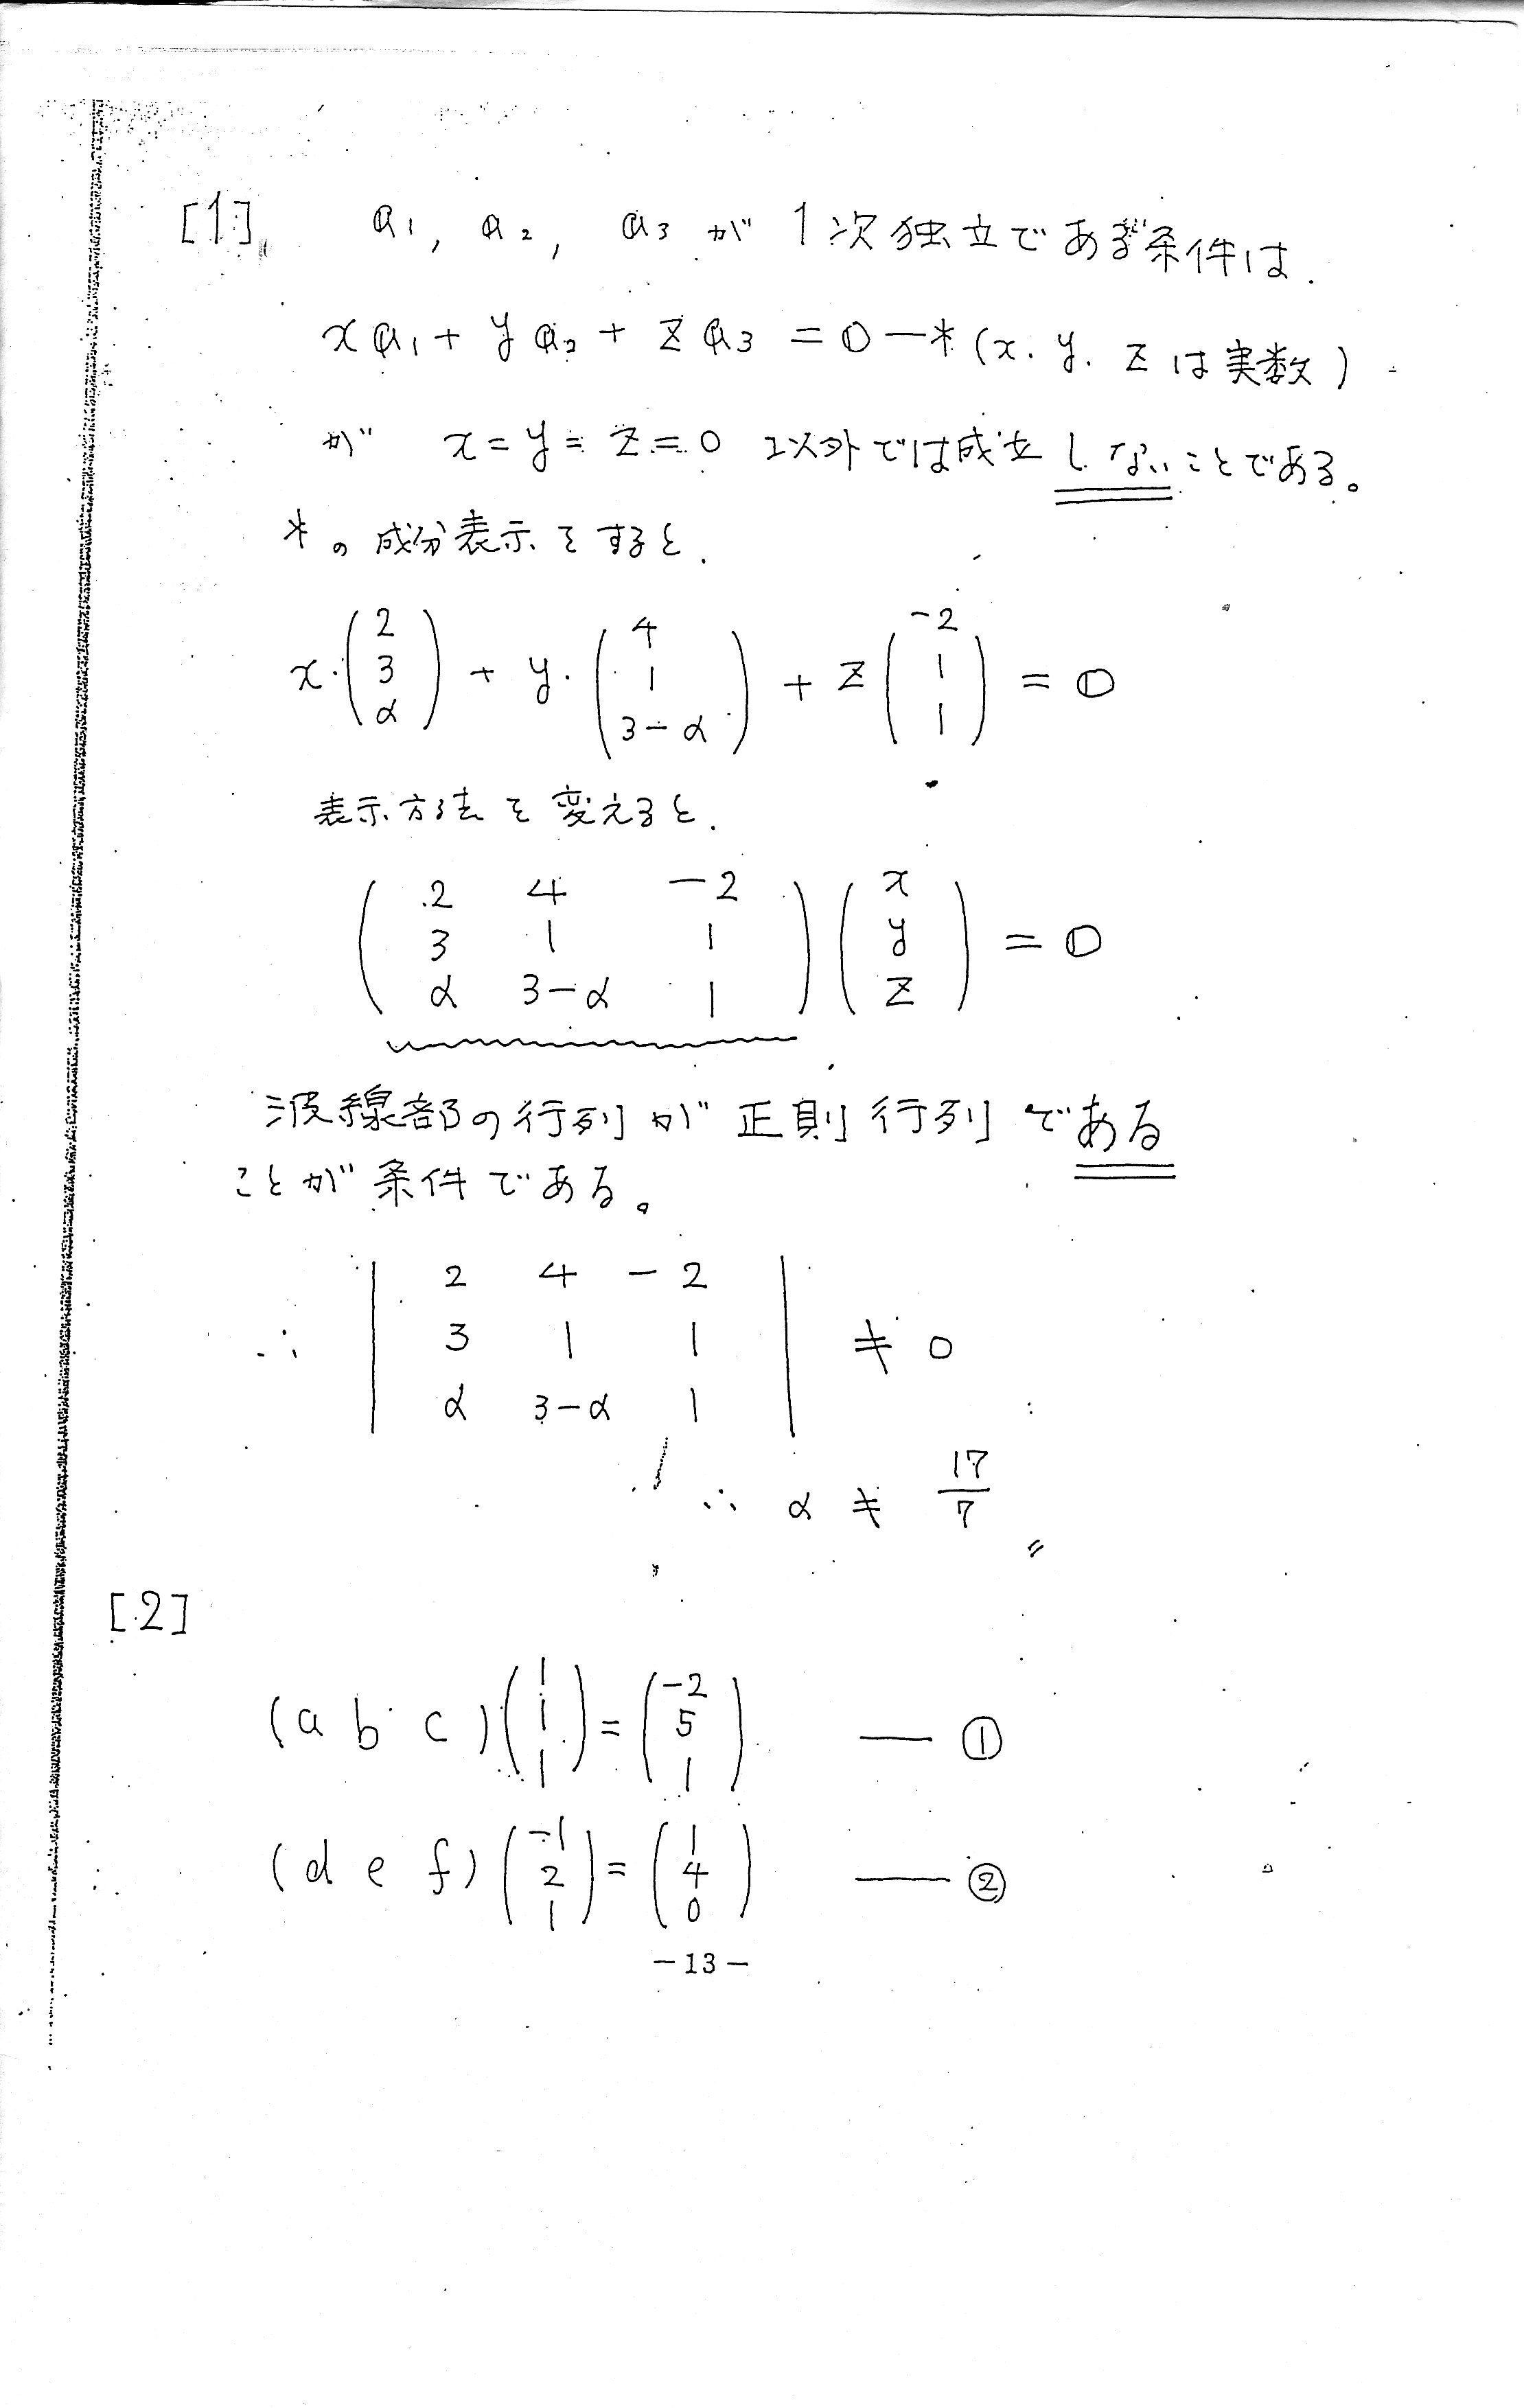 [1] a1, a2, a3 が 1次独立である条件は.
xa1 + ya2 + za3 = 0 —* (x. y. z は実数)
が x = y = z = 0 以外では成立しないことである。
*の成分表示をすると.
x・(2 3 α) + y・(4 1 3-α) + z(-2 1 1) = 0
表示方法を変えると.
(2 4 -2
3 1 1
α 3-α 1)(x y z) = 0
波線部の行列が正則行列である
ことが条件である。
∴ |2 4 -2
3 1 1
α 3-α 1| ≠ 0
∴ α ≠ 17/7
[2]
(a b c)(1 1 1) = (-2 5 1) — ①
(d e f)(-1 2 1) = (1 4 0) — ②
-13-